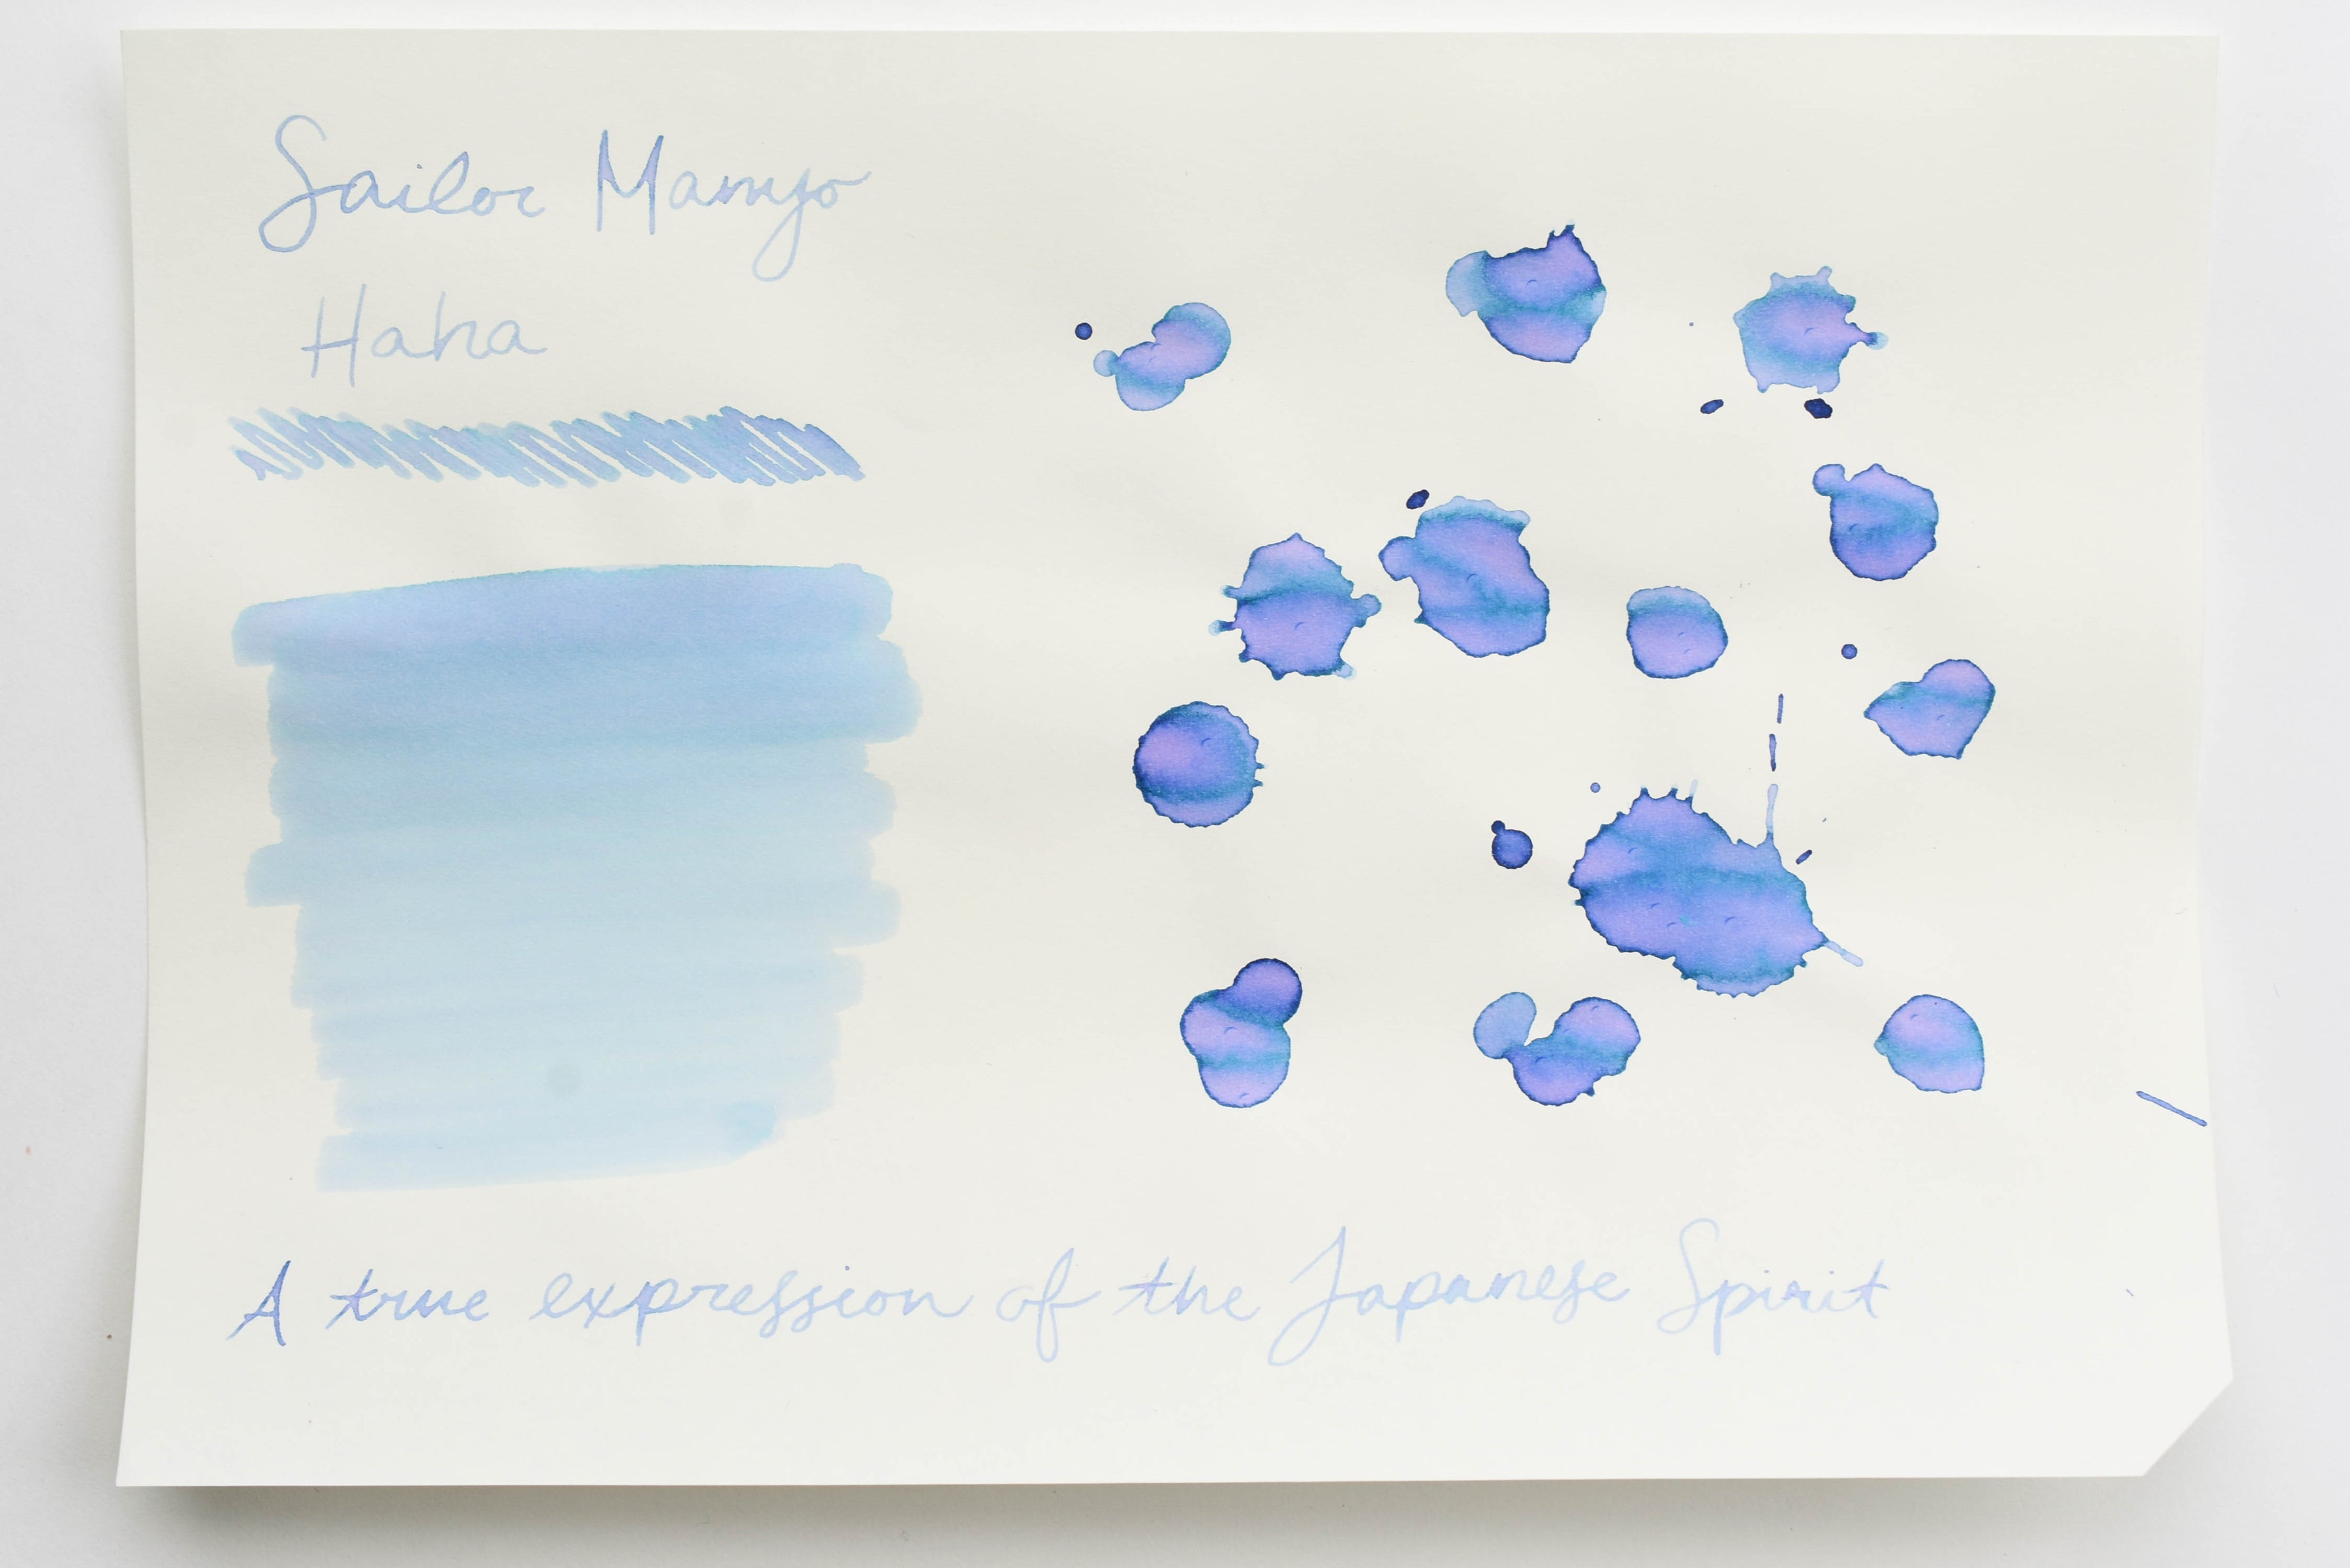 Sailor Manyo
Haha
A true expression of the Japanese Spirit